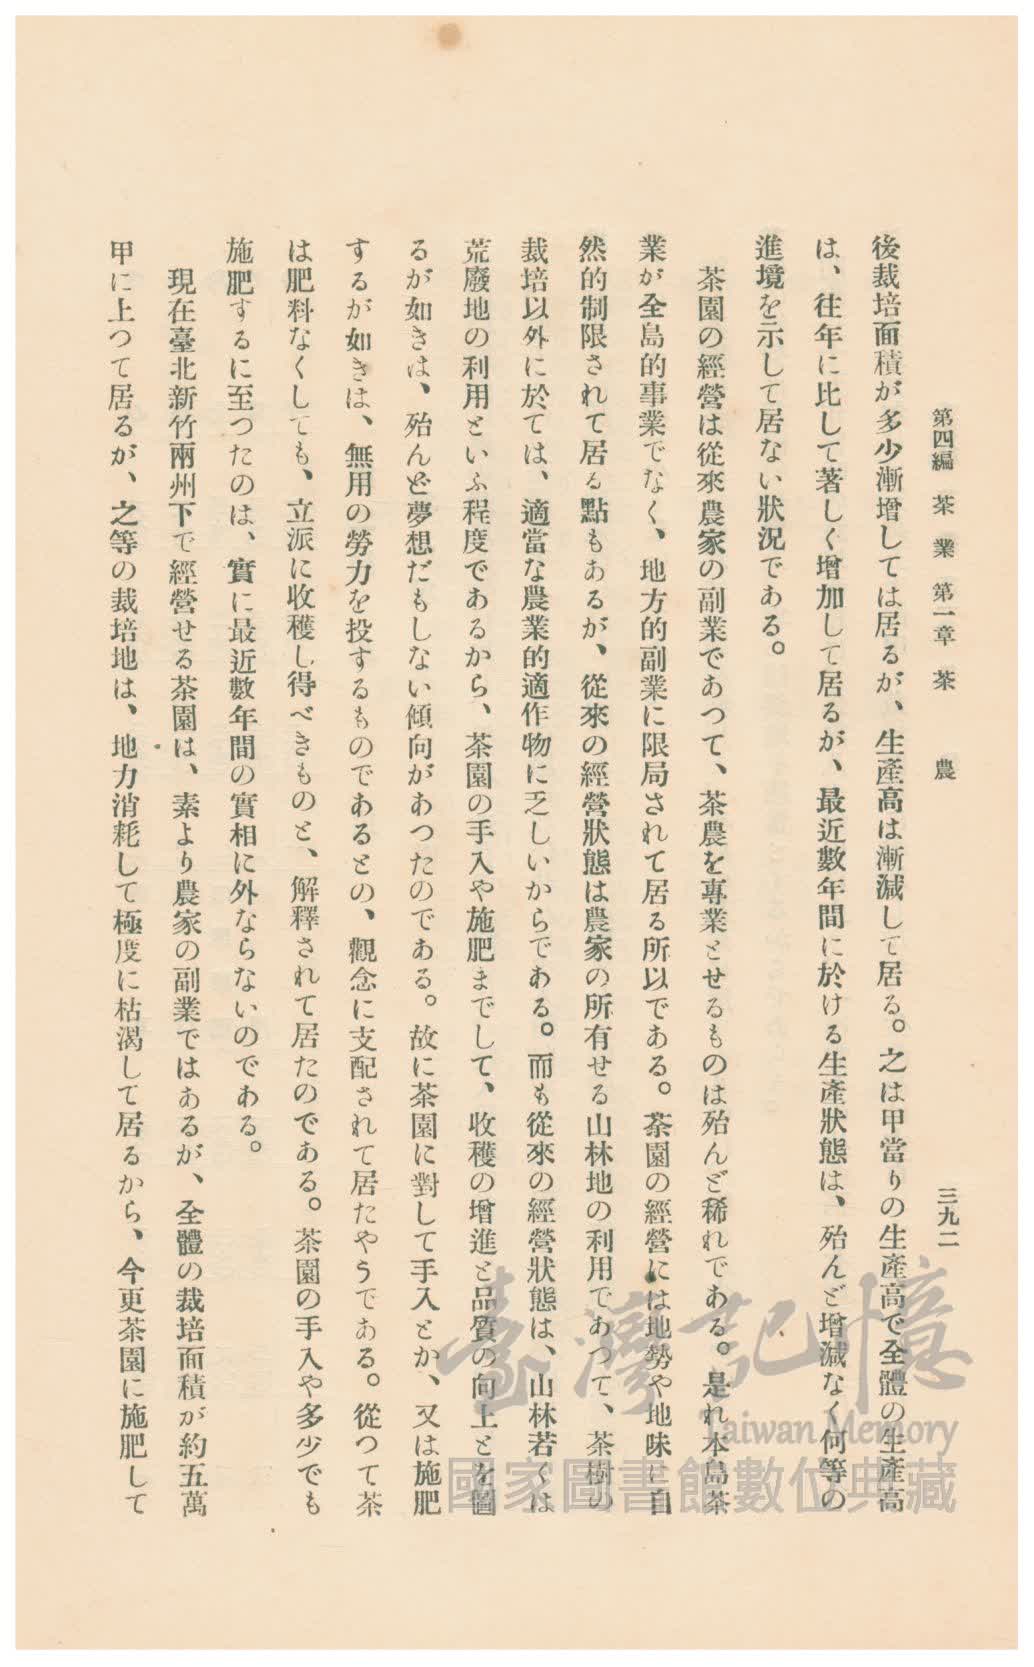 第四編 茶業 第一章 茶農 三九二
後栽培面積が多少漸增しては居るが、生產高は漸減して居る。之は甲當りの生產高で全體の生產高
は、往年に比して著しく增加して居るが、最近數年間に於ける生產狀態は、殆んど增減なく何等の
進境を示して居ない狀況である。
茶園の經營は從來農家の副業であつて、茶農を專業とせるものは殆んど稀れである。是れ本島茶
業が全島的事業でなく、地方的副業に限局されて居る所以である。茶園の經營には地勢や地味に自
然的制限されて居る點もあるが、從來の經營狀態は農家の所有せる山林地の利用であつて、茶樹の
栽培以外に於ては、適當な農業的適作物に乏しいからである。而も從來の經營狀態は、山林若くは
荒廢地の利用といふ程度であるから、茶園の手入や施肥までして、收穫の增進と品質の向上とを圖
るが如きは、殆んど夢想だもしない傾向があつたのである。故に茶園に對して手入とか、又は施肥
するが如きは、無用の勞力を投するものであるとの、觀念に支配されて居たやうである。從つて茶
は肥料なくしても、立派に收穫し得べきものと、解釋されて居たのである。茶園の手入や多少でも
施肥するに至つたのは、實に最近數年間の實相に外ならないのである。
現在臺北新竹兩州下で經營せる茶園は、素より農家の副業ではあるが、全體の栽培面積が約五萬
甲に上つて居るが、之等の栽培地は、地力消耗して極度に枯渴して居るから、今更茶園に施肥して
臺灣記憶
Taiwan Memory
國家圖書館數位典藏